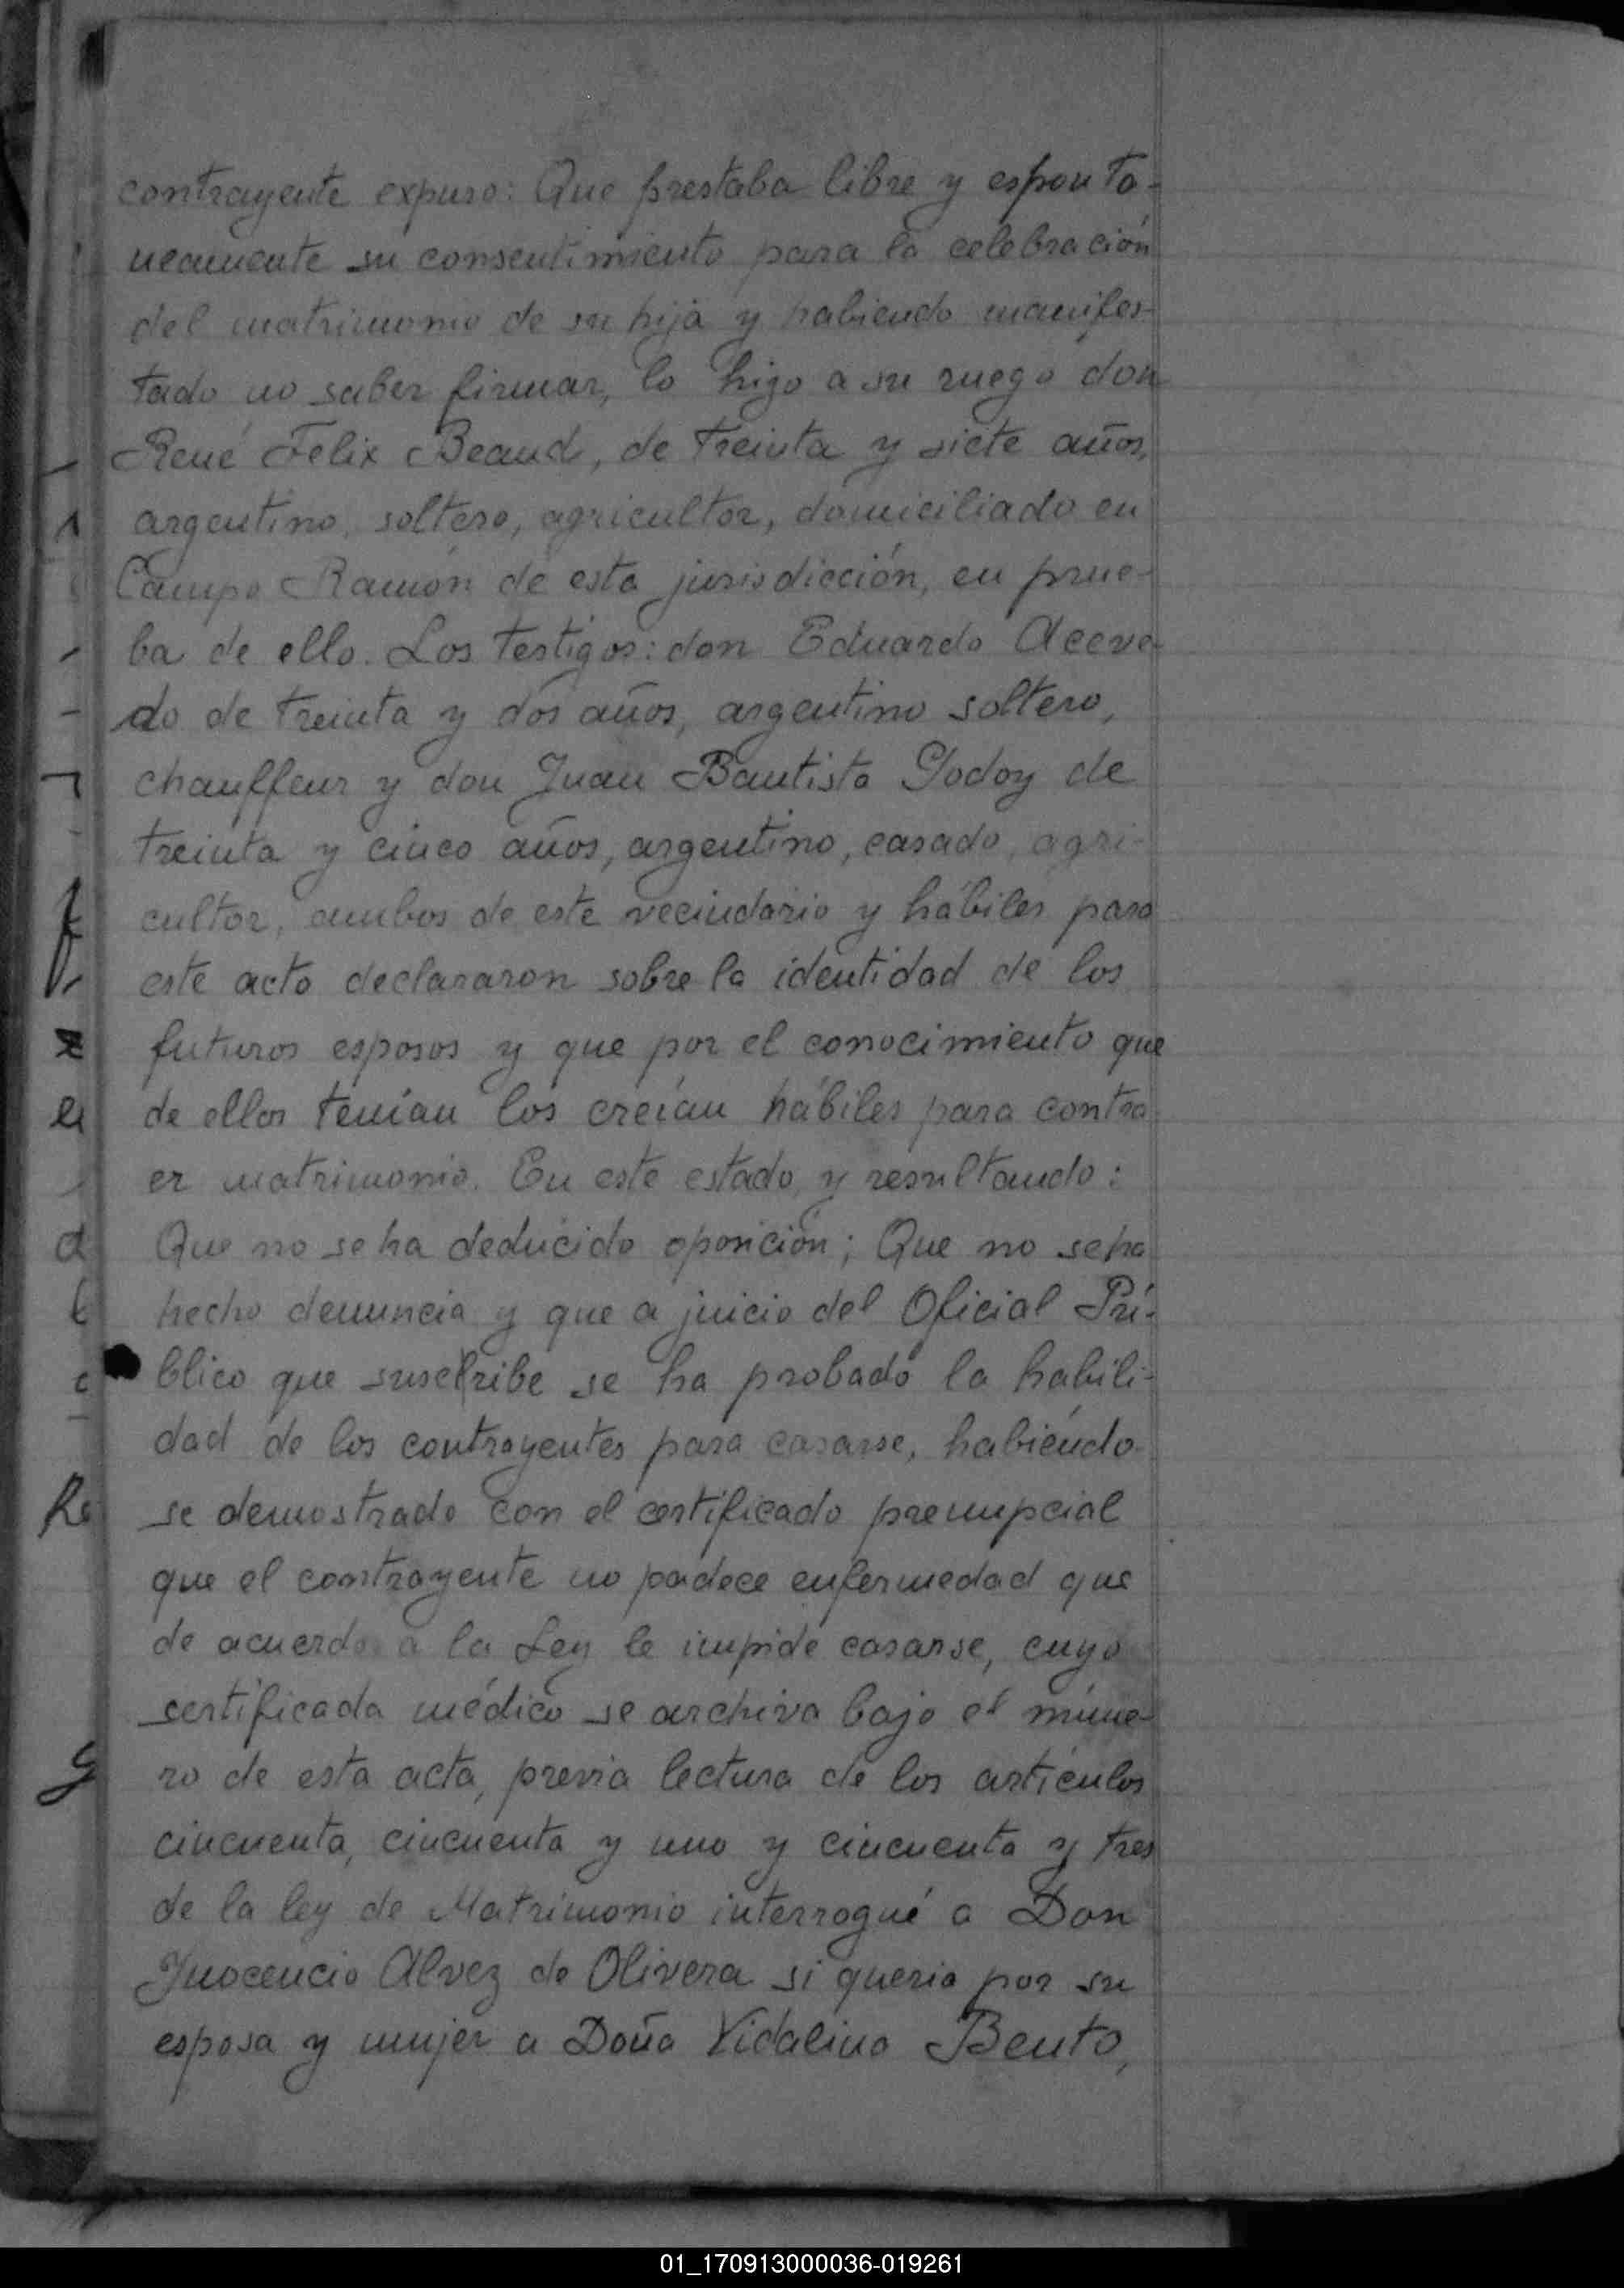 contrayente expuso: Que prestaba libre y esponta-
neamente su consentimiento para la celebración
del matrimonio de su hija y habiendo manifes-
tado no saber firmar, lo hizo a su ruego don
René Felix Beaud, de treinta y siete años,
argentino, soltero, agricultor, domiciliado en
Campo Ramón de esta jurisdicción, en prue-
ba de ello. Los testigos: don Eduardo Aceve-
do de treinta y dos años, argentino soltero,
chauffeur y don Juan Bautista Godoy de
treinta y cinco años, argentino, casado, agri-
cultor, ambos de este vecindario y hábiles para
este acto declararon sobre la identidad de los
futuros esposos y que por el conocimiento que
de ellos tenían los creían hábiles para contra
er matrimonio. En este estado y resultando:
Que no se ha deducido oposición; Que no se ha
hecho denuncia y que a juicio del Oficial Pú-
blico que suscribe se ha probado la habili-
dad de los contrayentes para casarse, habiendo
se demostrado con el certificado prenupcial
que el contrayente no padece enfermedad que
de acuerdo a la Ley le impide casarse, cuyo
certificado médico se archiva bajo el núme-
ro de esta acta, previa lectura de los artículos
cincuenta, cincuenta y uno y cincuenta y tres
de la ley de Matrimonio interrogué a Don
Inocencio Alvez de Olivera si queria por su
esposa y mujer a Doña Vidalina Bento,
01_170913000036-019261